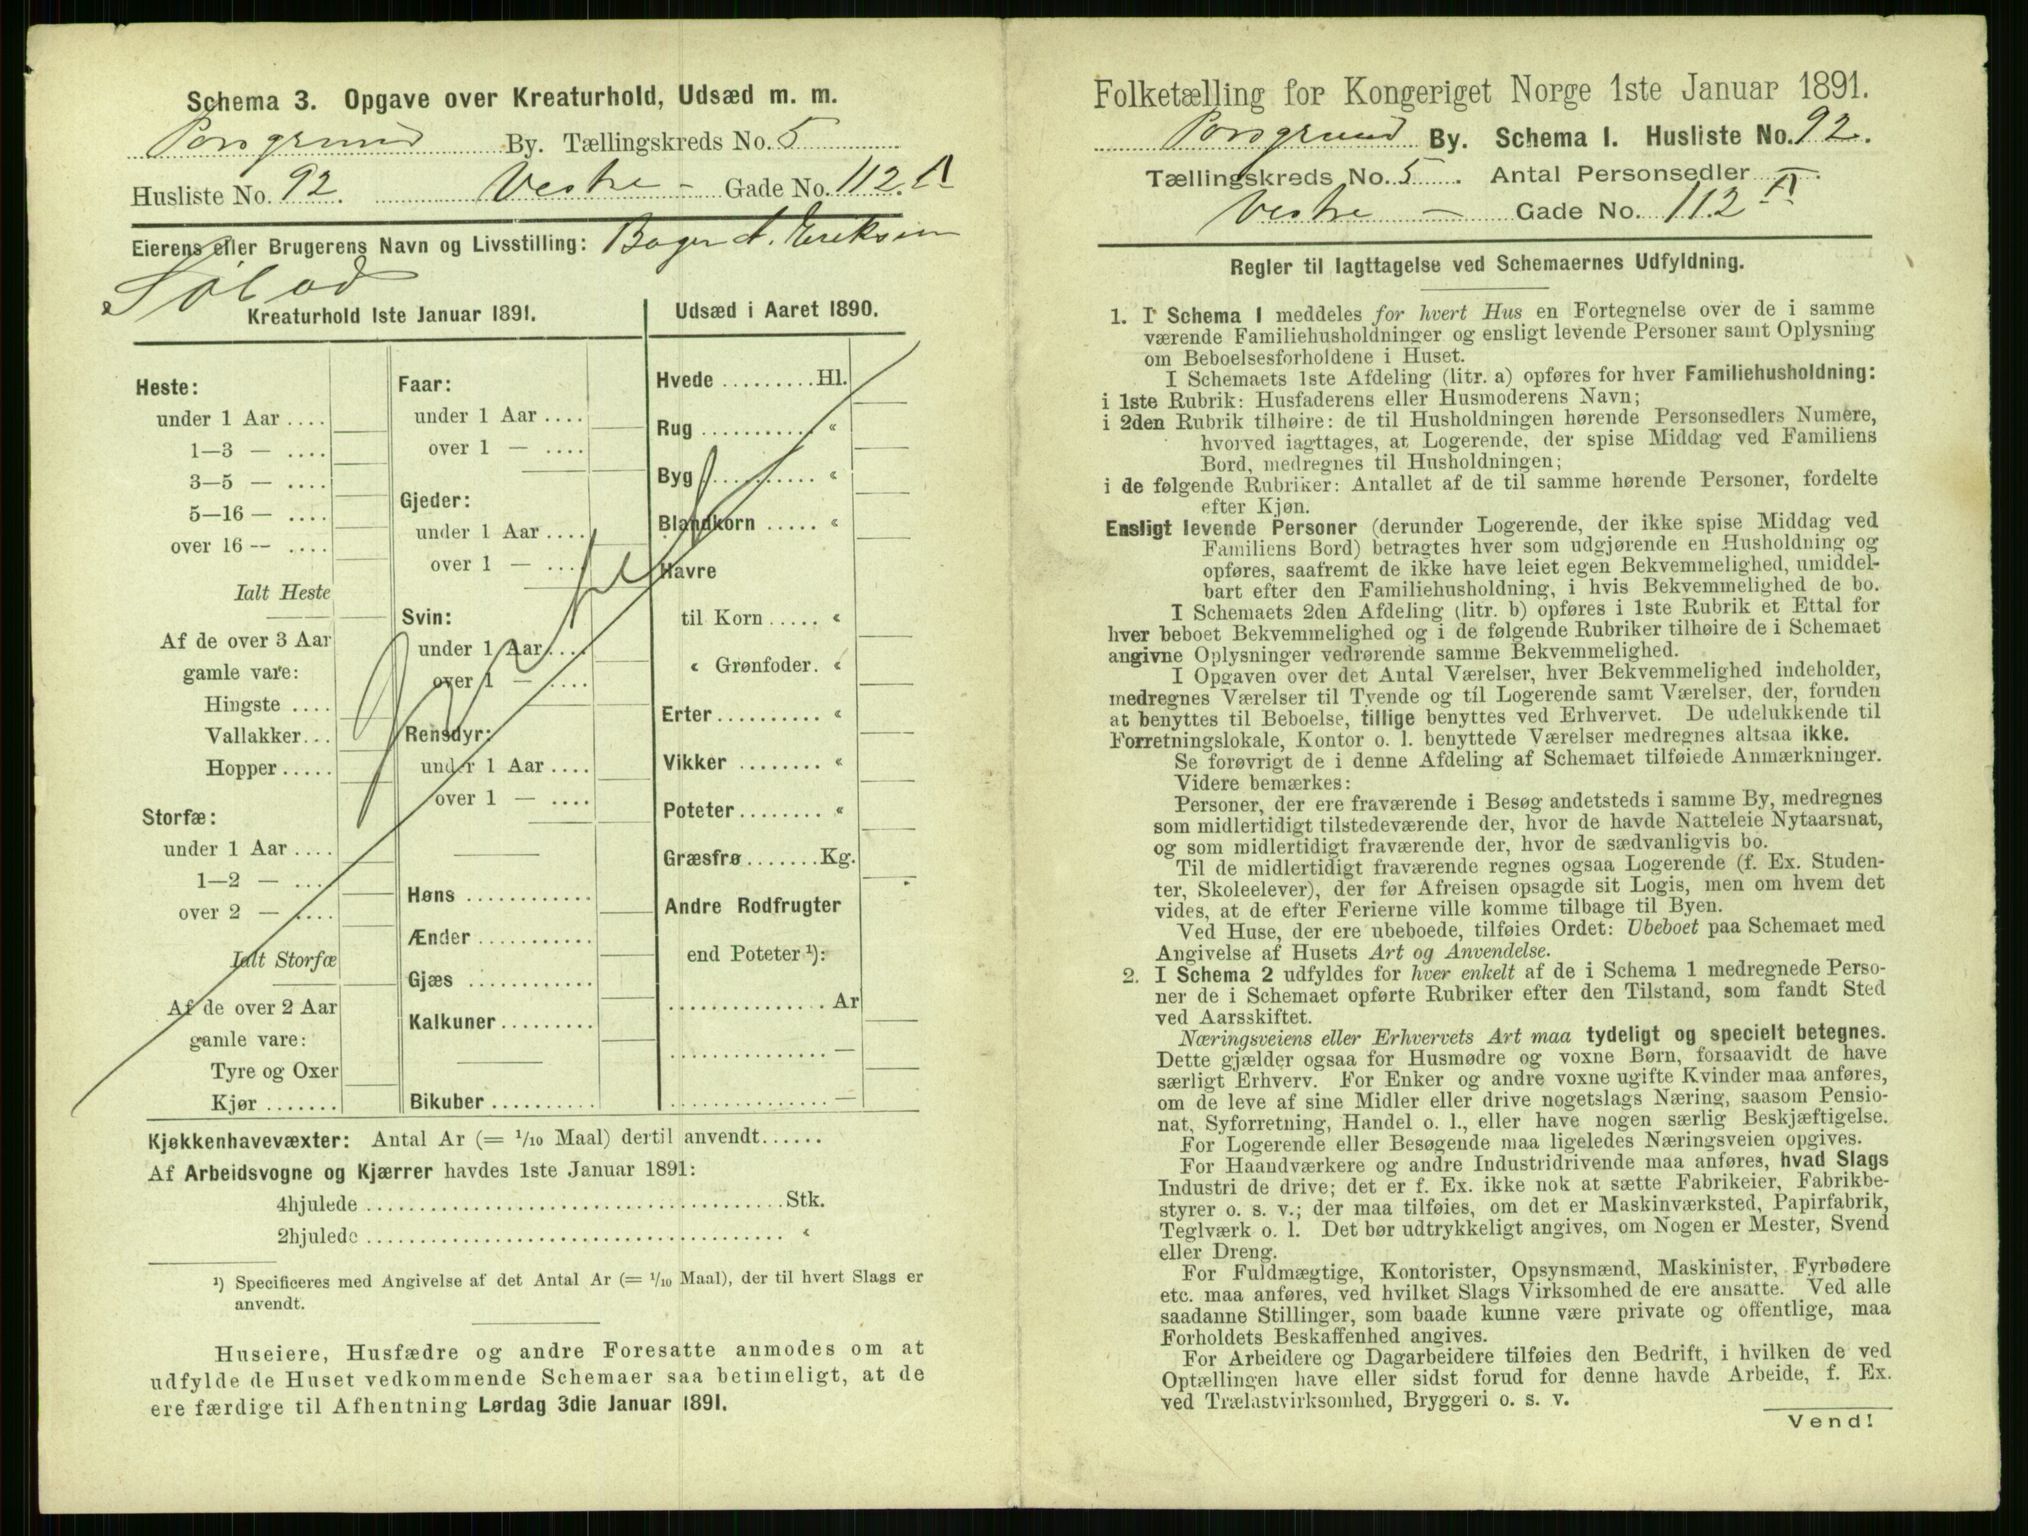 Schema 3. Opgave over Kreaturhold, Udsæd m. m.
Porsgrund By. Tællingskreds No. 5
Husliste No. 92. Vestre - Gade No. 112. II
Eierens eller Brugerens Navn og Livsstilling: Bager A. Eriksen
Kreaturhold 1ste Januar 1891.
Heste:
under 1 Aar ....
1—3 — ....
3—5 — ....
5—16 — ....
over 16 — ....
Ialt Heste
Af de over 3 Aar
gamle vare:
Hingste ....
Vallakker...
Hopper .....
Storfæ:
under 1 Aar ....
1—2 — ....
over 2 — ....
Ialt Storfæ
Af de over 2 Aar
gamle vare:
Tyre og Oxer
Kjør .......
Faar:
under 1 Aar ....
over 1 — ....
Gjeder:
under 1 Aar ....
over 1 — ....
Svin:
under 1 Aar ....
over 1 — ....
Rensdyr:
under 1 Aar ....
over 1 — ....
Høns ............
Ænder ...........
Gjæs ............
Kalkuner .........
Bikuber ..........
Udsæd i Aaret 1890.
Hvede ......... Hl.
Rug ........... «
Byg ........... «
Blandkorn ..... «
Havre
til Korn ..... «
« Grønfoder. «
Erter .......... «
Vikker ........ «
Poteter ........ «
Græsfrø ....... Kg.
Andre Rodfrugter
end Poteter ¹):
............... Ar
............... —
............... —
Kjøkkenhavevæxter: Antal Ar (= 1/10 Maal) dertil anvendt......
Af Arbeidsvogne og Kjærrer havdes 1ste Januar 1891:
4hjulede ........................................ Stk.
2hjulede ........................................ «
¹) Specificeres med Angivelse af det Antal Ar (= 1/10 Maal), der til hvert Slags er
anvendt.
Huseiere, Husfædre og andre Foresatte anmodes om at
udfylde de Huset vedkommende Schemaer saa betimeligt, at de
ere færdige til Afhentning Lørdag 3die Januar 1891.
Folketælling for Kongeriget Norge 1ste Januar 1891.
Porsgrund By. Schema I. Husliste No. 92.
Tællingskreds No. 5. Antal Personsedler .
Vestre - Gade No. 112 II
Regler til Iagttagelse ved Schemaernes Udfyldning.
1. I Schema 1 meddeles for hvert Hus en Fortegnelse over de i samme
værende Familiehusholdninger og ensligt levende Personer samt Oplysning
om Beboelsesforholdene i Huset.
I Schemaets 1ste Afdeling (litr. a) opføres for hver Familiehusholdning:
i 1ste Rubrik: Husfaderens eller Husmoderens Navn;
i 2den Rubrik tilhøire: de til Husholdningen hørende Personsedlers Numere,
hvorved iagttages, at Logerende, der spise Middag ved Familiens
Bord, medregnes til Husholdningen;
i de følgende Rubriker: Antallet af de til samme hørende Personer, fordelte
efter Kjøn.
Ensligt levende Personer (derunder Logerende, der ikke spise Middag ved
Familiens Bord) betragtes hver som udgjørende en Husholdning og
opføres, saafremt de ikke have leiet egen Bekvemmelighed, umiddel-
bart efter den Familiehusholdning, i hvis Bekvemmelighed de bo.
I Schemaets 2den Afdeling (litr. b) opføres i 1ste Rubrik et Ettal for
hver beboet Bekvemmelighed og i de følgende Rubriker tilhøire de i Schemaet
angivne Oplysninger vedrørende samme Bekvemmelighed.
I Opgaven over det Antal Værelser, hver Bekvemmelighed indeholder,
medregnes Værelser til Tyende og til Logerende samt Værelser, der, foruden
at benyttes til Beboelse, tillige benyttes ved Erhvervet. De udelukkende til
Forretningslokale, Kontor o. l. benyttede Værelser medregnes altsaa ikke.
Se forøvrigt de i denne Afdeling af Schemaet tilføiede Anmærkninger.
Videre bemærkes:
Personer, der ere fraværende i Besøg andetsteds i samme By, medregnes
som midlertidigt tilstedeværende der, hvor de havde Natteleie Nytaarsnat,
og som midlertidigt fraværende der, hvor de sædvanligvis bo.
Til de midlertidigt fraværende regnes ogsaa Logerende (f. Ex. Studen-
ter, Skoleelever), der før Afreisen opsagde sit Logis, men om hvem det
vides, at de efter Ferierne ville komme tilbage til Byen.
Ved Huse, der ere ubeboede, tilføies Ordet: Ubeboet paa Schemaet med
Angivelse af Husets Art og Anvendelse.
2. I Schema 2 udfyldes for hver enkelt af de i Schema 1 medregnede Perso-
ner de i Schemaet opførte Rubriker efter den Tilstand, som fandt Sted
ved Aarsskiftet.
Næringsveiens eller Erhvervets Art maa tydeligt og specielt betegnes.
Dette gjælder ogsaa for Husmødre og voxne Børn, forsaavidt de have
særligt Erhverv. For Enker og andre voxne ugifte Kvinder maa anføres,
om de leve af sine Midler eller drive nogetslags Næring, saasom Pensio-
nat, Syforretning, Handel o. l., eller have nogen særlig Beskjæftigelse.
For Logerende eller Besøgende maa ligeledes Næringsveien opgives.
For Haandværkere og andre Industridrivende maa anføres, hvad Slags
Industri de drive; det er f. Ex. ikke nok at sætte Fabrikeier, Fabrikbe-
styrer o. s. v.; der maa tilføies, om det er Maskinværksted, Papirfabrik,
Teglværk o. l. Det bør udtrykkeligt angives, om Nogen er Mester, Svend
eller Dreng.
For Fuldmægtige, Kontorister, Opsynsmænd, Maskinister, Fyrbødere
etc. maa anføres, ved hvilket Slags Virksomhed de ere ansatte. Ved alle
saadanne Stillinger, som baade kunne være private og offentlige, maa
Forholdets Beskaffenhed angives.
For Arbeidere og Dagarbeidere tilføies den Bedrift, i hvilken de ved
Optællingen have eller sidst forud for denne havde Arbeide, f. Ex.
ved Trælastvirksomhed, Bryggeri o. s. v.
Vend!